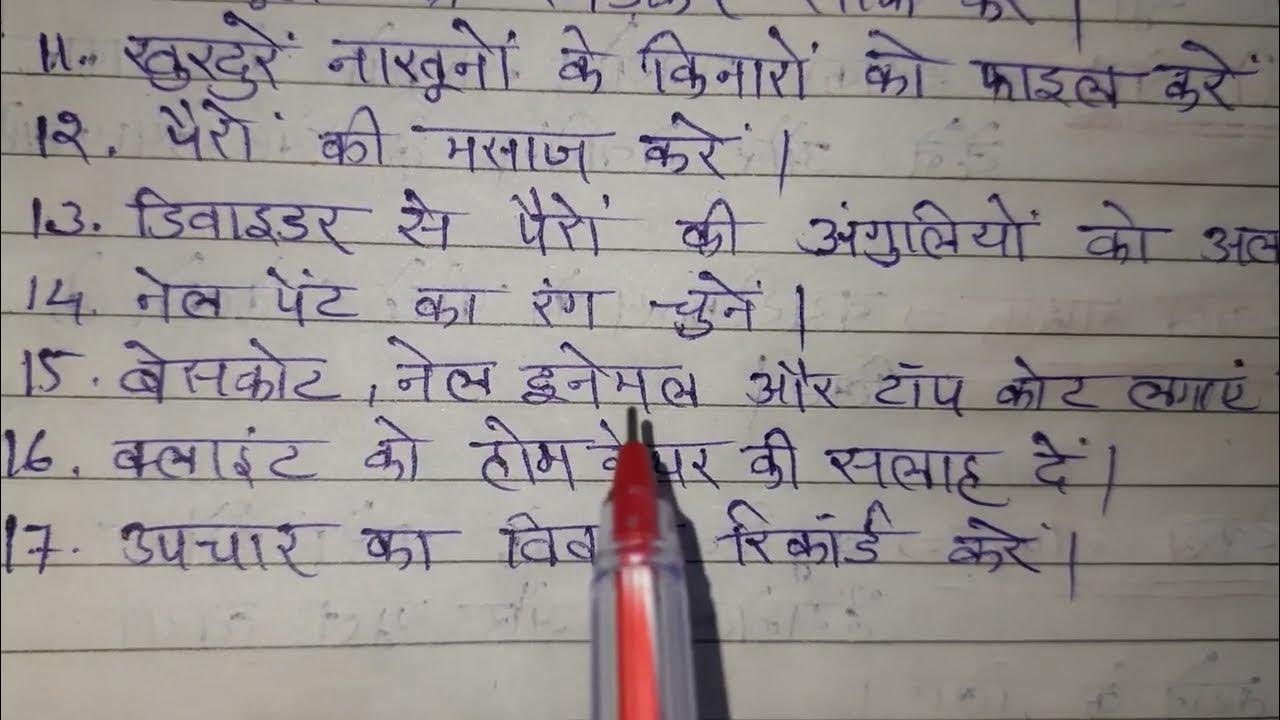 11. खुरदुरें नाखूनों के किनारों को फाइल करें
12. पैरों की मसाज करें।
13. डिवाइडर से पैरों की अंगुलियों को अल
14. नेल पेंट का रंग चुनें।
15. बेसकोट, नेल इनेमल और टॉप कोट लगाएं
16. क्लाइंट को होम केयर की सलाह दें।
17. उपचार का विव रिकॉर्ड करें।